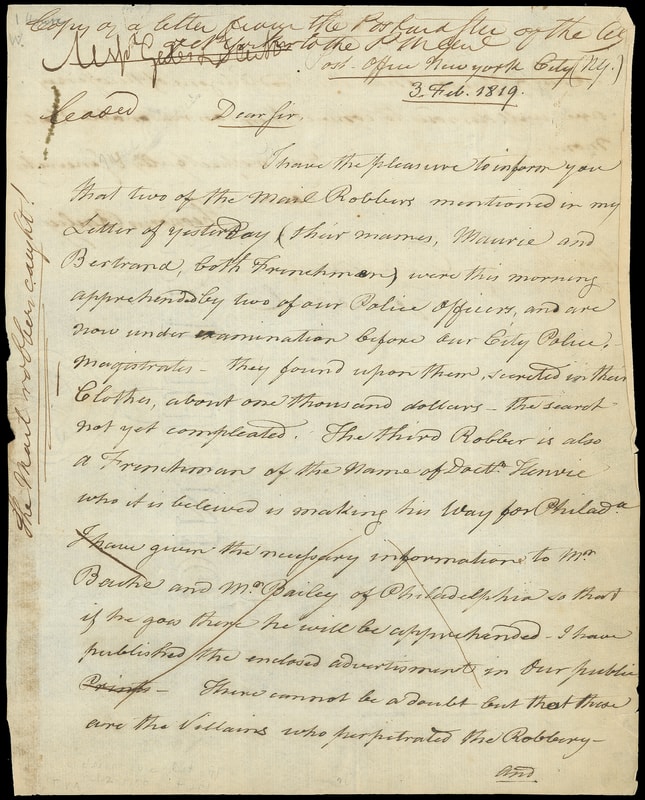 Copy of a letter from the Postmaster of the City
of New York to the P. M. Genl
Messrs Gales & Seaton
Post Office New York City (NY.)
3 Feb. 1819.
Dear Sir.
I have the pleasure to inform you
that two of the Mail Robbers mentioned in my
Letter of yesterday (their names, Maurie and
Bertrand, both Frenchmen) were this morning
apprehended by two of our Police Officers, and are
now under examination before our City Police
Magistrates - they found upon them, secreted in their
Clothes, about one thousand dollars - the search
not yet compleated. The third Robber is also
a Frenchman of the Name of Doctr.
who it is beleived is making his Way for Philada.
I have given the necessary information to Mr
Bache and Mr Bailey of Philadelphia so that
if he goes there he will be apprehended - I have
published the enclosed advertisment in our public
Prints - There cannot be a doubt but that these
are the Villains who perpetrated the Robbery -
and
The Mail robbers caught!